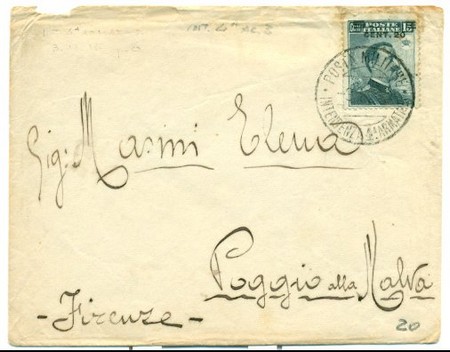 POSTE 15
ITALIANE
CENT. 20
POSTA MILITARE
INTENDENZA 4ª ARMATA
Sig: Masini Elena
Poggio alla Malva
- Firenze -
20